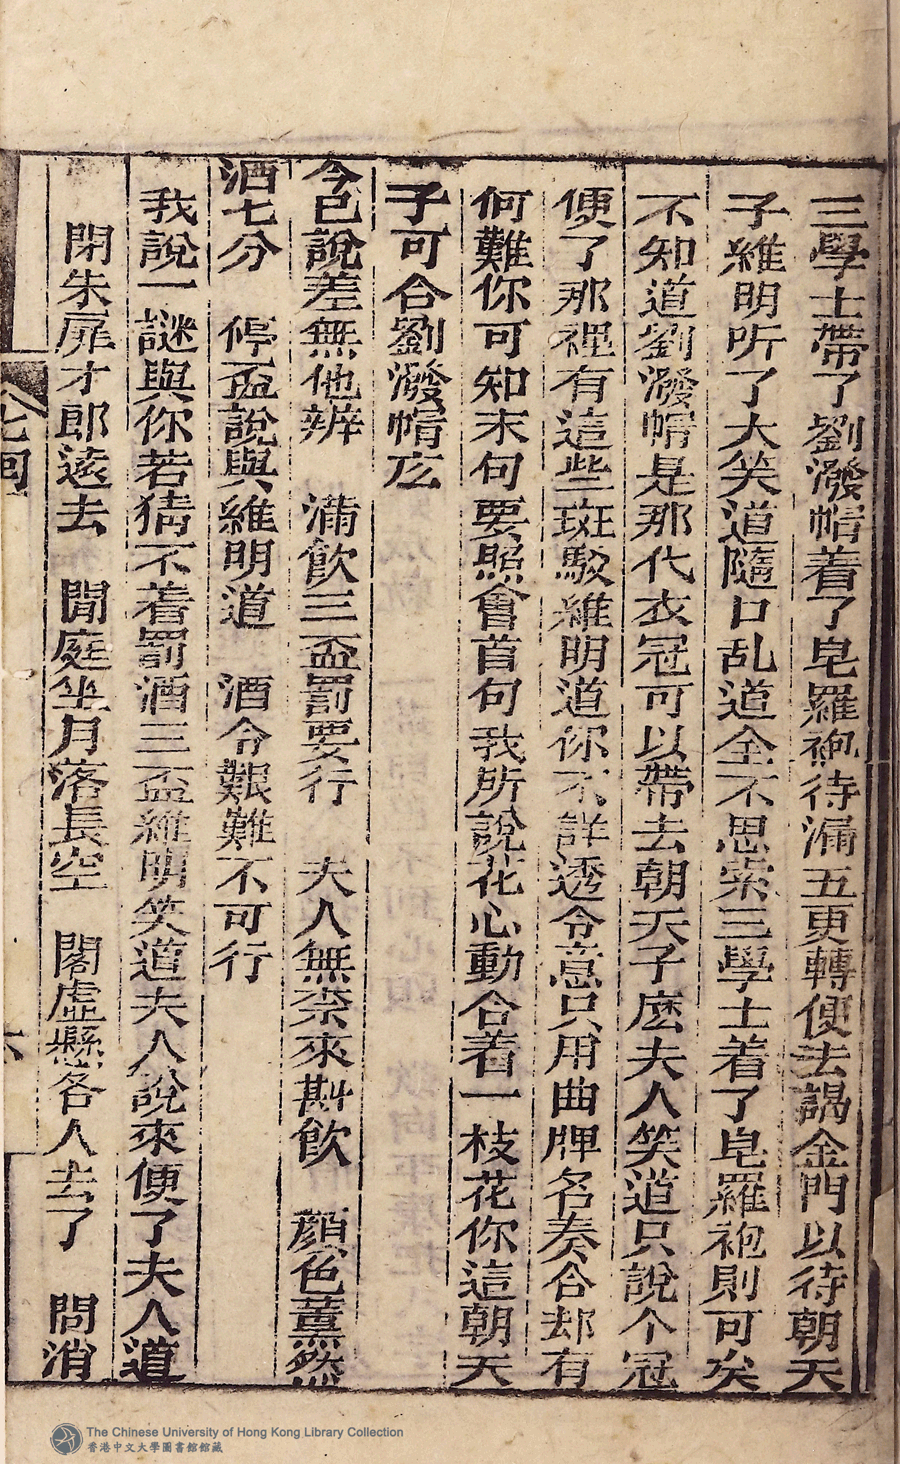 三學士帶了劉潑帽着了皂羅袍待漏五更轉便去謁金門以待朝天
子維明听了大笑道隨口乱道全不思索三學士着了皂羅袍則可矣
不知道劉潑帽是那代衣冠可以帶去朝天子庅夫人笑道只說个冠
便了那裡有這些斑駁維明道你不詳透令意只用曲牌名奏合却有
何難你可知末句要照會首句我所說花心動合着一枝花你這朝天
子可合劉潑帽庅
今已說差無他辨　滿飲三盃罰要行　夫人無柰來斟飲　顏色薰然
酒七分　停盃說與維明道　酒令艱難不可行
我說一謎與你若猜不着罰酒三盃維明笑道夫人說來便了夫人道
閉朱扉才郎遠去　閒庭坐月落長空　閣虛懸各人去了　問消
七回
六
The Chinese University of Hong Kong Library Collection
香港中文大學圖書館館藏